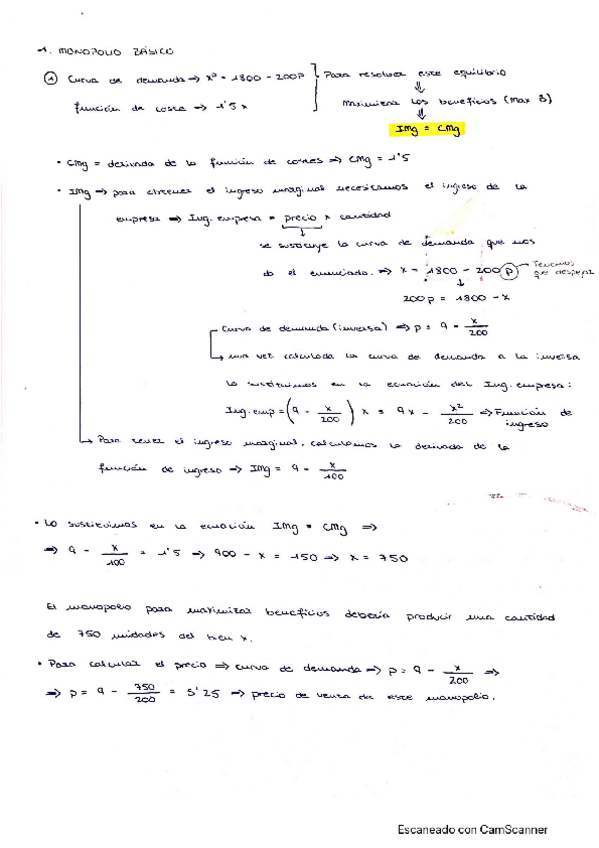 1. MONOPOLIO BÁSICO
① Curva de demanda → xᴰ = 1800 - 200P } Para resolver este equilibrio
⇓
función de costes ⇒ 1'5 x
Maximizar los beneficios (Max B)
⇓
IMg = CMg
• CMg = derivada de la función de costes ⇒ CMg = 1'5
• IMg → para obtener el ingreso marginal necesitamos el ingreso de la
empresa ⇒ Ing. empresa = precio x cantidad
↓
se sustituye la curva de demanda que nos
da el enunciado. ⇒ x = 1800 - 200 p → Tenemos que despejar
↓
200p = 1800 - x
Curva de demanda (inversa) ⇒ p = 9 - x/200
→ una vez calculada la curva de demanda a la inversa
la sustituimos en la ecuación del Ing. empresa:
Ing. emp = (9 - x/200) x = 9x - x²/200 ⇒ Función de ingreso
→ Para tener el ingreso marginal, calculamos la derivada de la
función de ingreso ⇒ IMg = 9 - x/100
• Lo sustituimos en la ecuación IMg = CMg ⇒
⇒ 9 - x/100 = 1'5 ⇒ 900 - x = 150 ⇒ x = 750
El monopolio para maximizar beneficios debería producir una cantidad
de 750 unidades del bien x.
• Para calcular el precio ⇒ curva de demanda ⇒ p = 9 - x/200 ⇒
⇒ p = 9 - 750/200 = 5'25 ⇒ precio de venta de este monopolio.
Escaneado con CamScanner